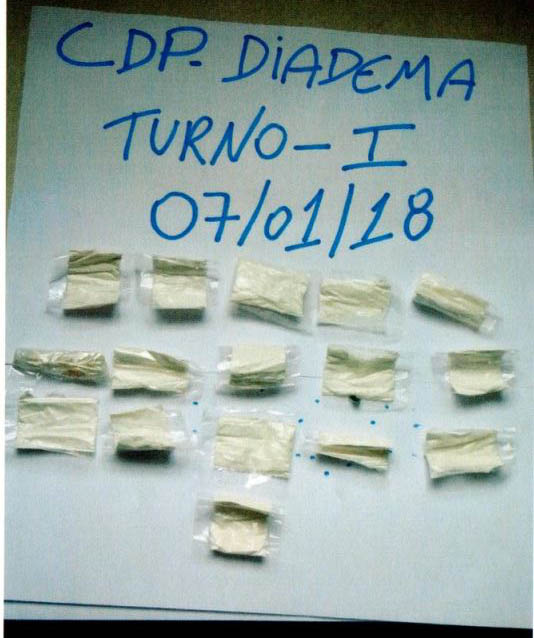 CDP. DIADEMA
TURNO - I
07/01/18